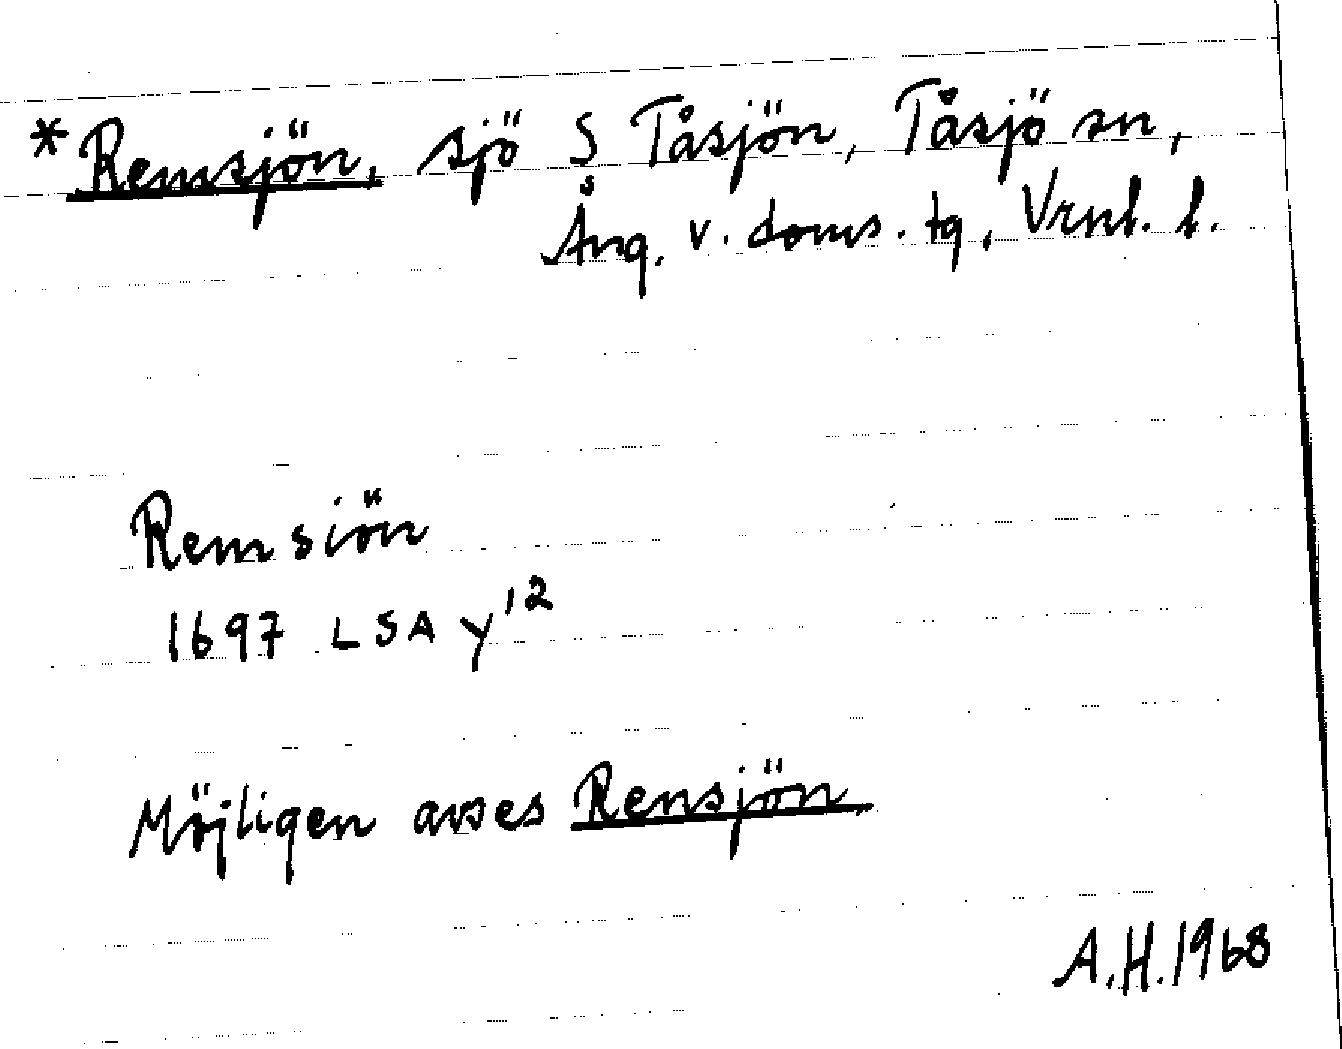 *Remsjön, sjö S Tåsjön, Tåsjö sn,
Ång. v. doms. tg, Vrnl. l.
Remsiön
1697 LSA y12
Möjligen avses Rensjön
A.H. 1968